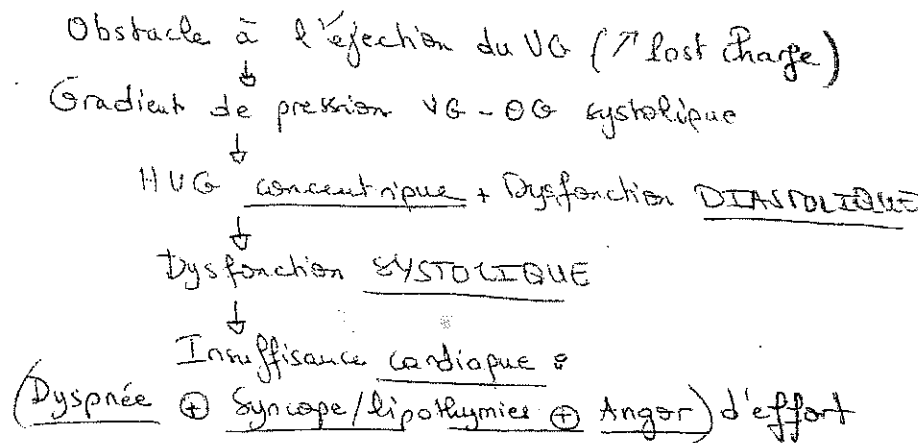 Obstacle à l'éjection du VG (↗ Post Charge)
↓
Gradient de pression VG - OG systolique
↓
HVG concentrique + Dysfonction DIASTOLIQUE
↓
Dysfonction SYSTOLIQUE
↓
Insuffisance cardiaque :
(Dyspnée ⊕ Syncope/lipothymies ⊕ Angor) d'effort